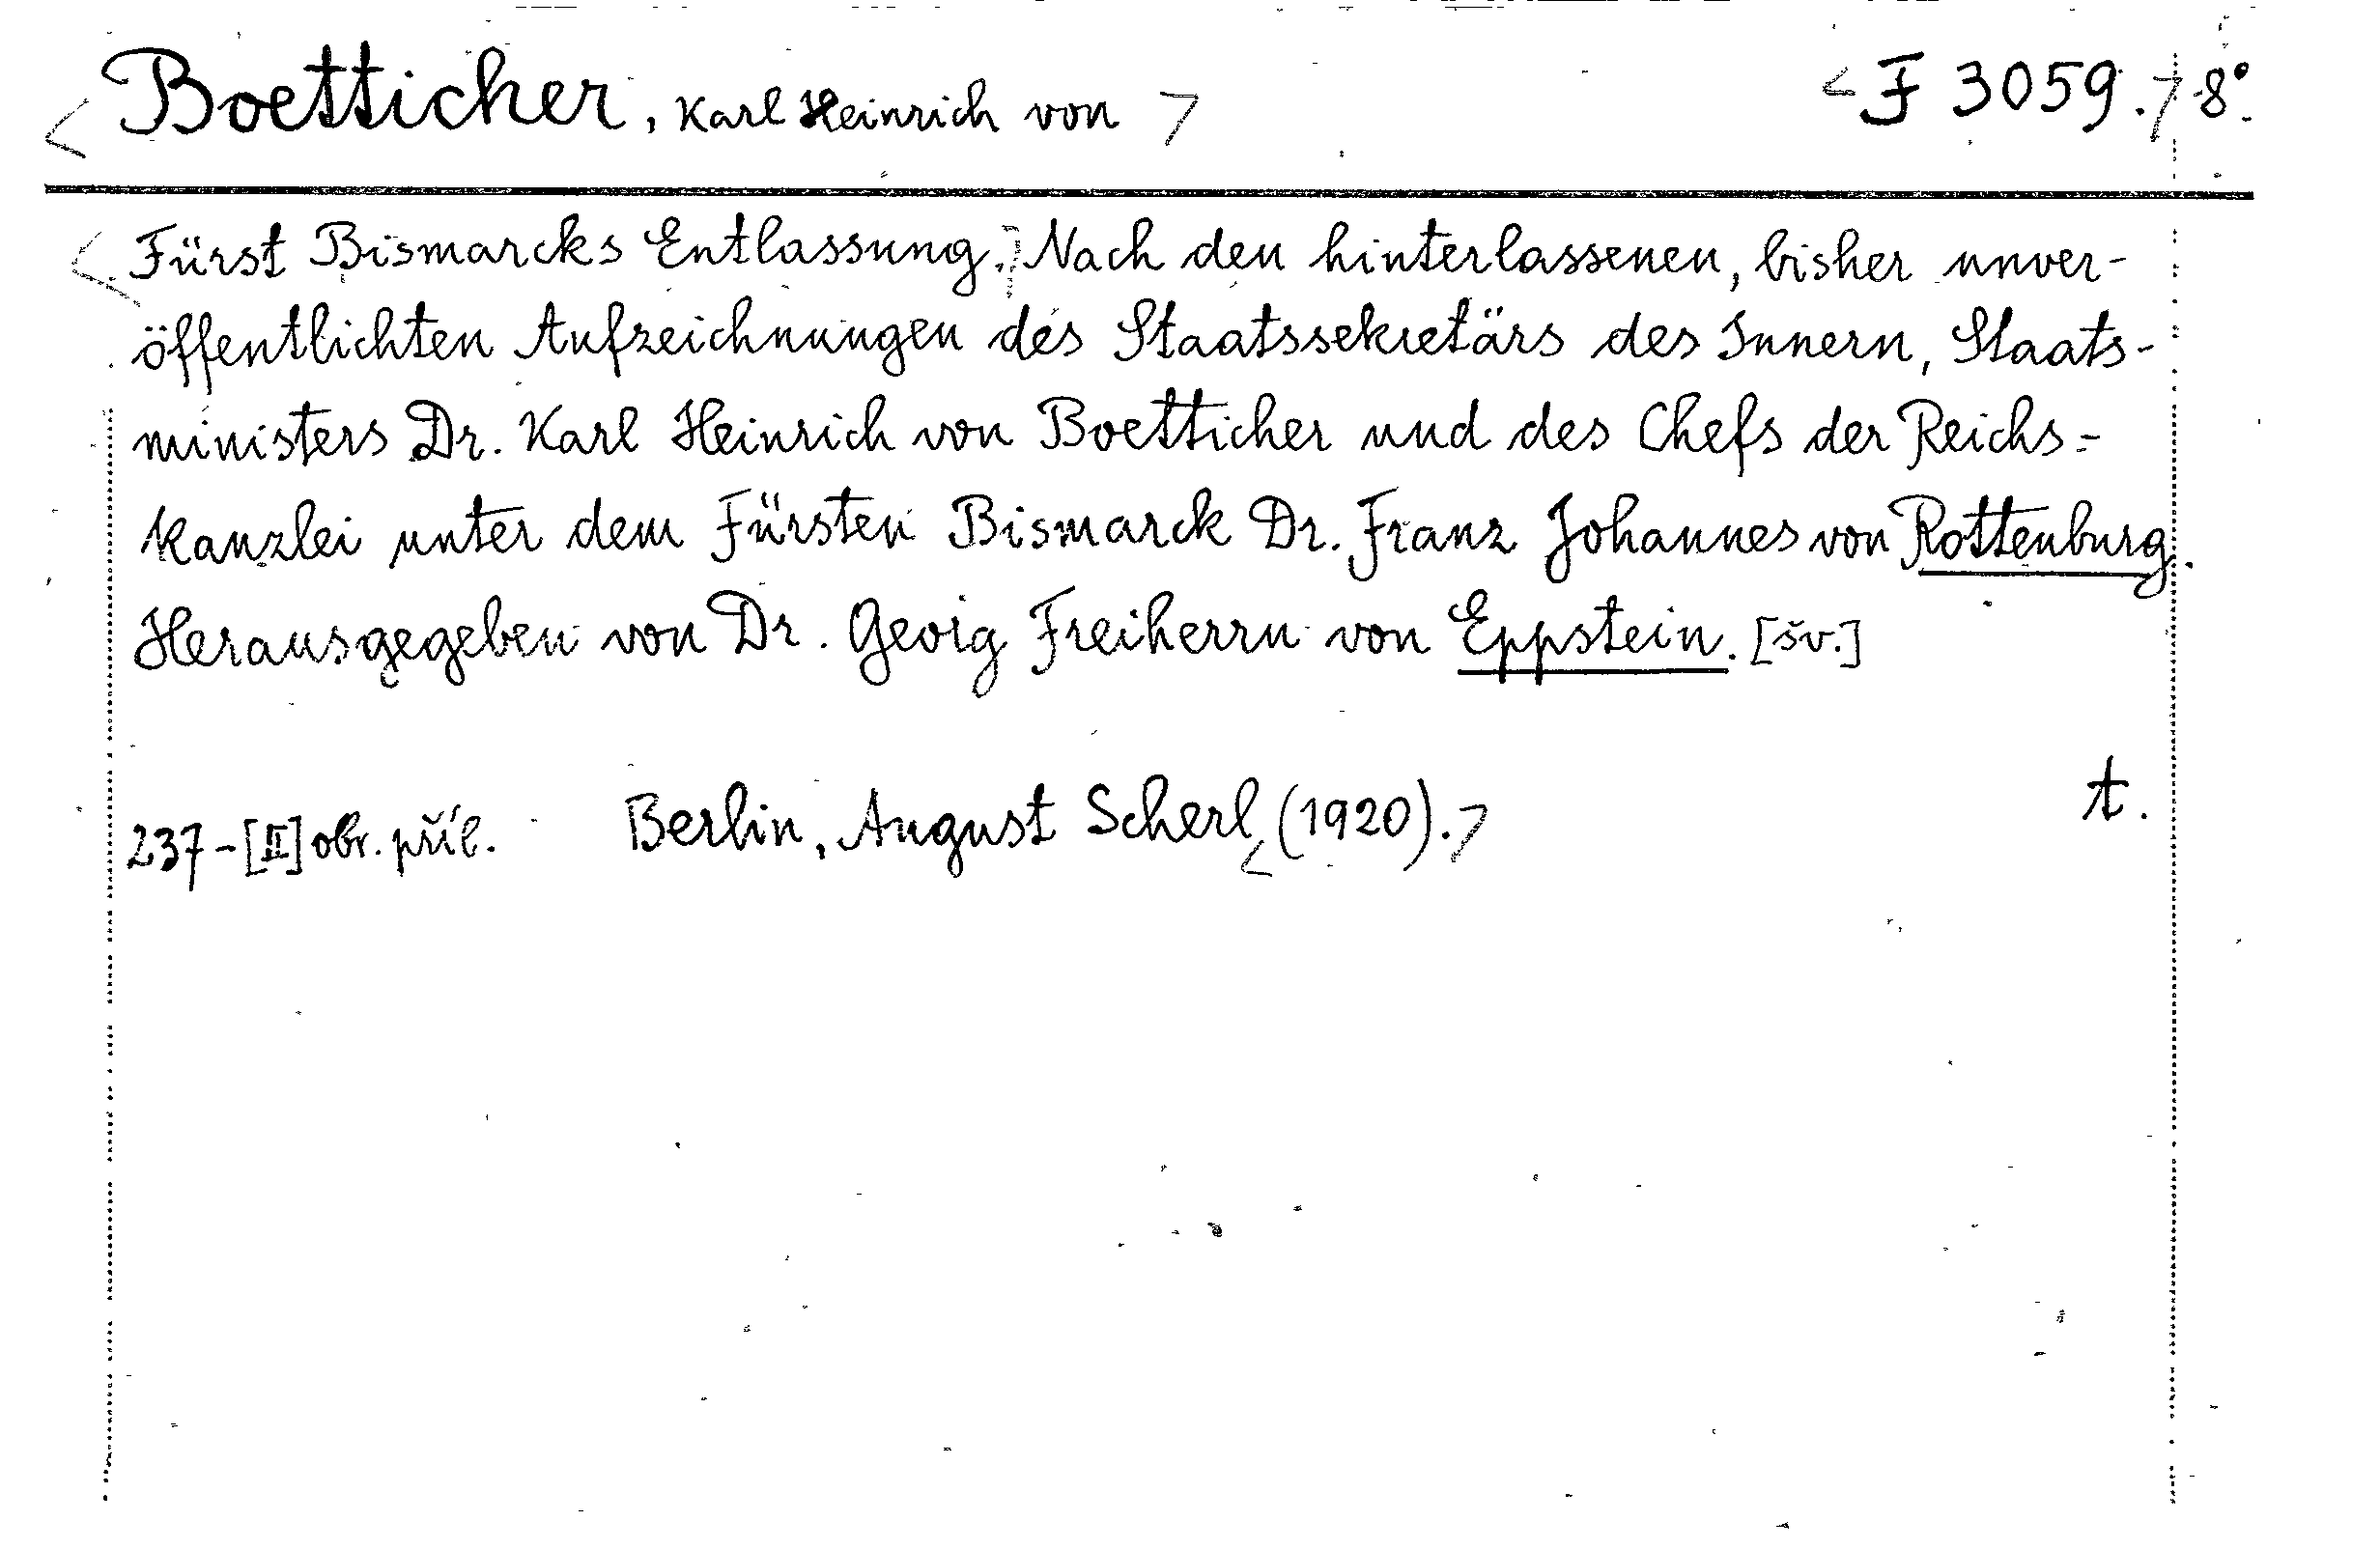 <Boetticher, Karl Heinrich von> <F 3059.> 8°
<Fürst Bismarcks Entlassung.> Nach den hinterlassenen, bisher unver-
öffentlichten Aufzeichnungen des Staatssekretärs des Innern, Staats-
ministers Dr. Karl Heinrich von Boetticher und des Chefs der Reichs-
kanzlei unter dem Fürsten Bismarck Dr. Franz Johannes von Rottenburg.
Herausgegeben von Dr. Georg Freiherrn von Eppstein. [šv.]
t.
237-[II] obr. příl. Berlin, August Scherl <(1920).>